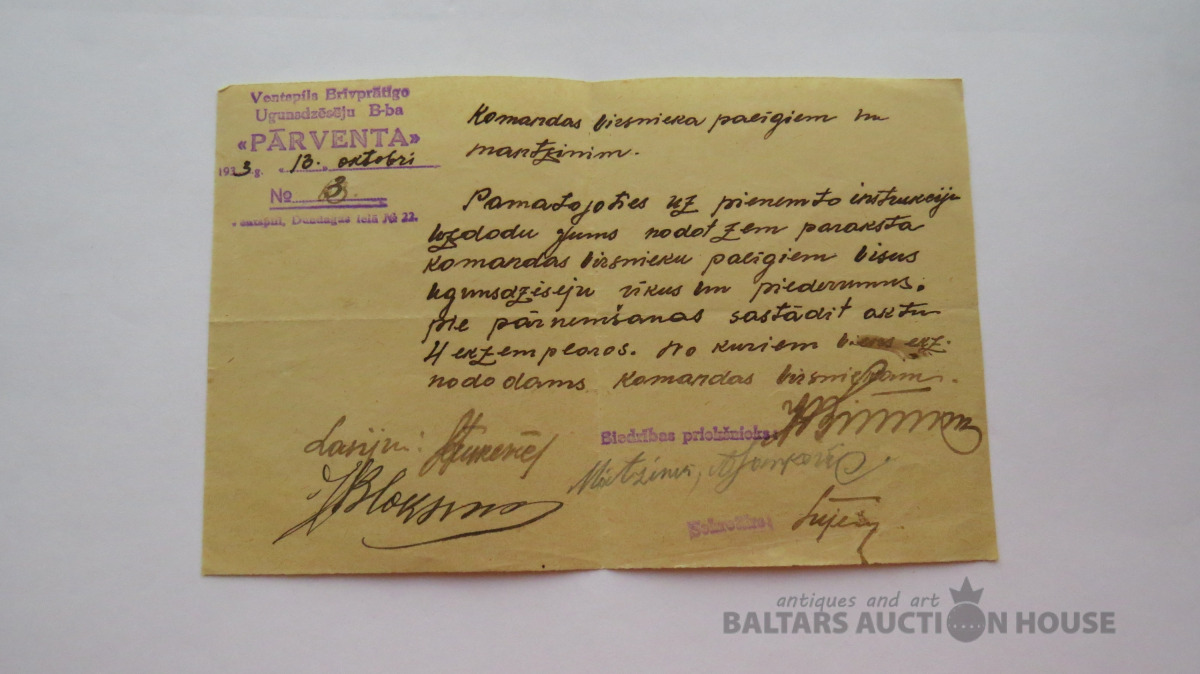 Ventspils Brīvprātīgo
Ugunsdzēsēju B-ba
«PĀRVENTA»
1933. g. „13. oktobri
№ 3
Ventspilī, Dundagas ielā № 22.
Komandas virsnieka palīgiem un
mantzinim.
Pamatojoties uz pieņemto instrukciju
uzdodu Jums nodot zem paraksta
komandas virsnieku palīgiem visus
ugunsdzēsēju rīkus un piederumus.
pie pārņemšanas sastādīt aktu
4 ekzemplaros. No kuriem viens ekz.
nododams komandas virsniekam.
Biedrības priekšnieks:
Lasīju:
JBloksma
Mantzinis,
Sekretārs:
antiques and art
BALTARS AUCTION HOUSE